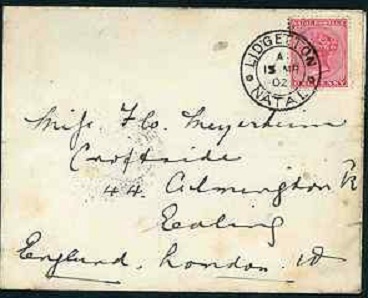 LIDGETTON
A
02
NATAL
ONE PENNY
Miss Flo. Meyerheim
Croftside
44. Almington R
Ealing
England. London. W